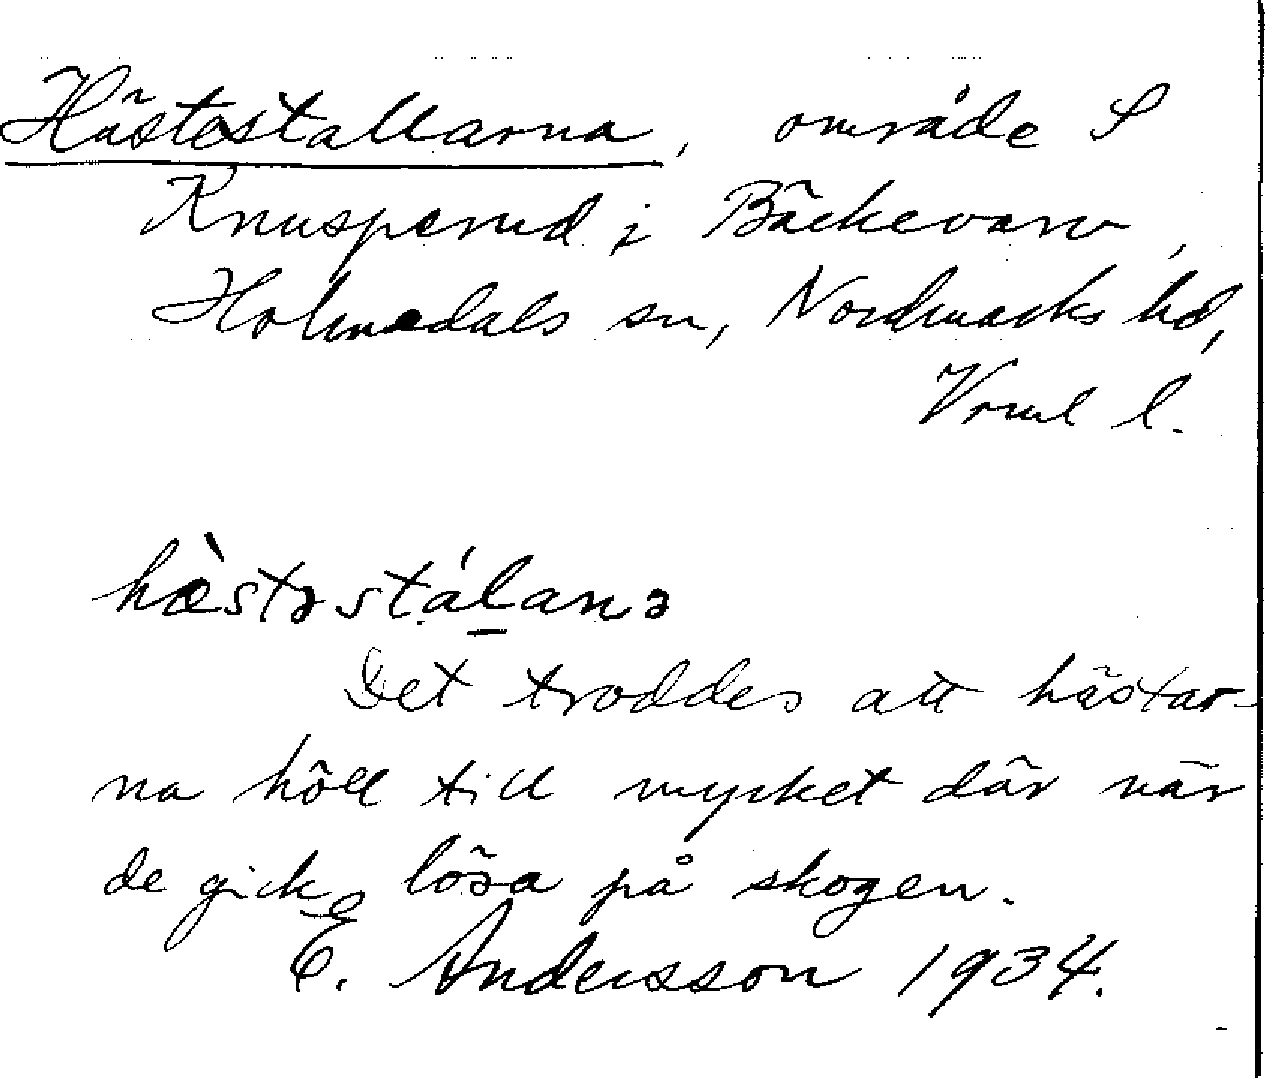 Hästestallarna, område S
Knusperud i Bäckevarv,
Holmedals sn, Nordmarks hd,
Vrml l.
hæ̀stəstálanə
Det troddes att hästar-
na höll till mycket där när
de gick lösa på skogen.
E. Andersson 1934.